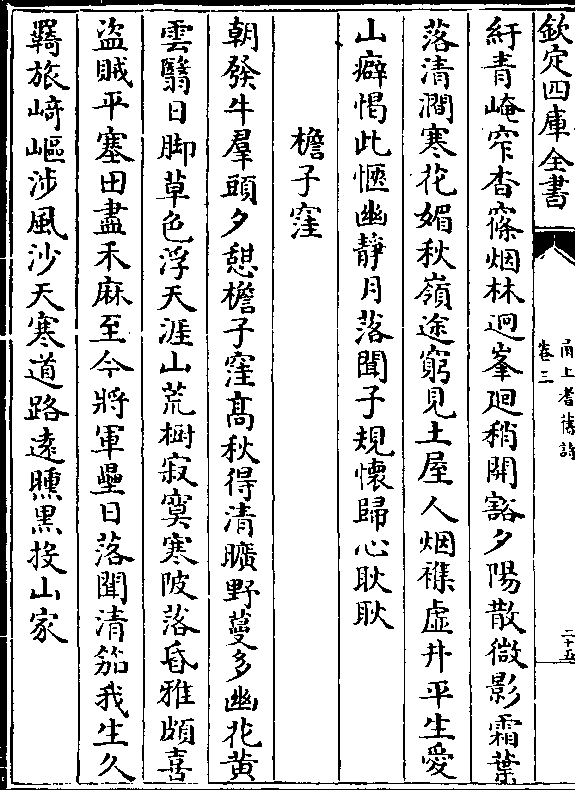 欽定四庫全書
甬上耆舊詩
卷三
二十五
紆青崦窄杳窱烟林迥峯廻稍開豁夕陽散微影霜葉
落清澗寒花媚秋嶺途窮見土屋人烟襍虛井平生愛
山癖愒此愜幽靜月落聞子規懷歸心耿耿
檐子窪
朝發牛羣頭夕憇檐子窪髙秋得清曠野蔓多幽花黄
雲翳日脚草色浮天涯山荒樹寂寞寒陂落昏雅頗喜
盜賊平塞田盡禾麻至今將軍壘日落聞清笳我生久
羇旅崎嶇涉風沙天寒道路遠曛黒投山家